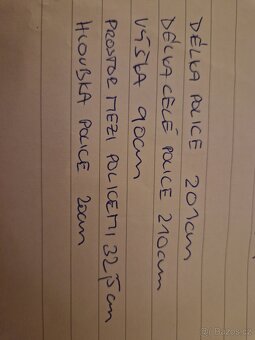 DÉLKA POLICE 201cm
DÉLKA CELÉ POLICE 210cm
VÝŠKA 90cm
PROSTOR MEZI POLICEMI 32,5cm
HLOUBKA POLICE 20cm